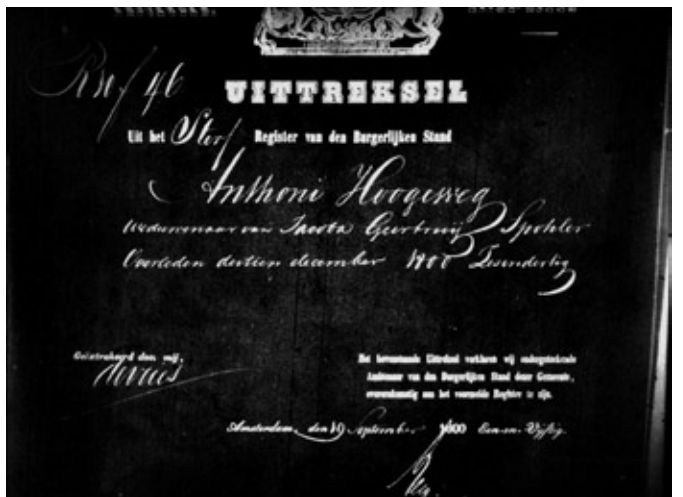 R 10 f 46
UITTREKSEL
Uit het Sterf Register van den Burgerlijken Stand
Anthoni Hoogeweg
Weduwenaar van Jacoba Geertruij Spohler
Overleden dertien december 1800 Zesendertig
Geëxtraheerd door mij,
de Vries
Het bovenstaande Uittreksel verklaren wij ondergeteekende
Ambtenaar van den Burgerlijken Stand dezer Gemeente,
overeenkomstig aan het voormelde Register te zijn.
Amsterdam, den 19 September 1800 Een en Vijftig.